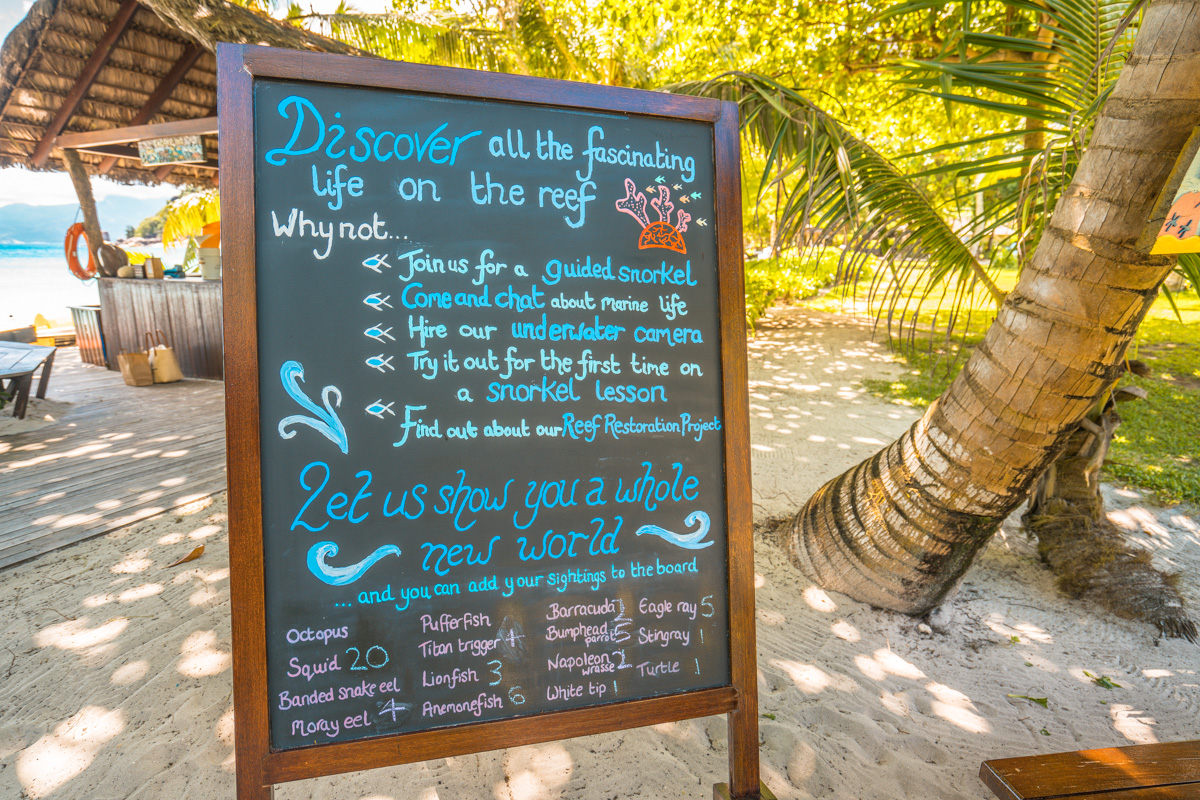 Discover all the fascinating
life on the reef
Why not...
Join us for a guided snorkel
Come and chat about marine life
Hire our underwater camera
Try it out for the first time on
a snorkel lesson
Find out about our Reef Restoration Project
Let us show you a whole
new world
... and you can add your sightings to the board
Octopus
Squid 20
Banded snake eel
Moray eel 4
Pufferfish
Titan trigger 4
Lionfish 3
Anemonefish 6
Barracuda
Bumphead parrot 5
Napoleon wrasse 2
White tip 1
Eagle ray 5
Stingray 1
Turtle 1